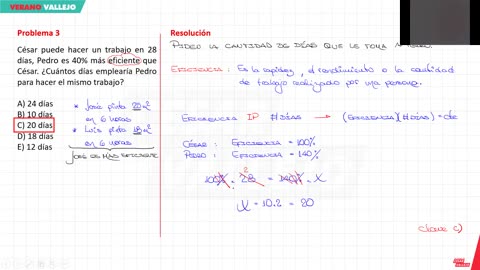 VERANO VALLEJO
Problema 3
César puede hacer un trabajo en 28
días, Pedro es 40% más eficiente que
César. ¿Cuántos días emplearía Pedro
para hacer el mismo trabajo?
A) 24 días
B) 10 días
C) 20 días
D) 18 días
E) 12 días
* José pinta 20 m²
en 6 horas
* Luis pinta 18 m²
en 6 horas
José es más eficiente
Resolución
PIDEN LA CANTIDAD DE DÍAS QUE LE TOMA A
EFICIENCIA : Es la rapidez, el rendimiento o la cantidad
de trabajo realizado por una persona.
EFICIENCIA IP #DÍAS → (EFICIENCIA)(#DÍAS) = cte
CÉSAR : EFICIENCIA = 100%
PEDRO : EFICIENCIA = 140%
100% . 28 = 140% . X
2
X = 10.2 = 20
clave c)